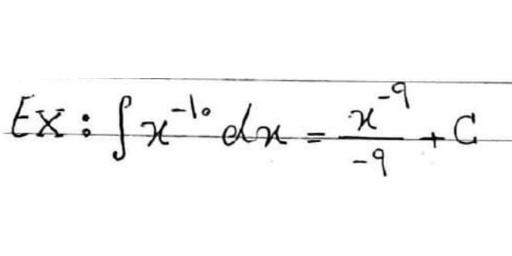 Ex: ∫x⁻¹⁰ dx = x⁻⁹/-9 + C